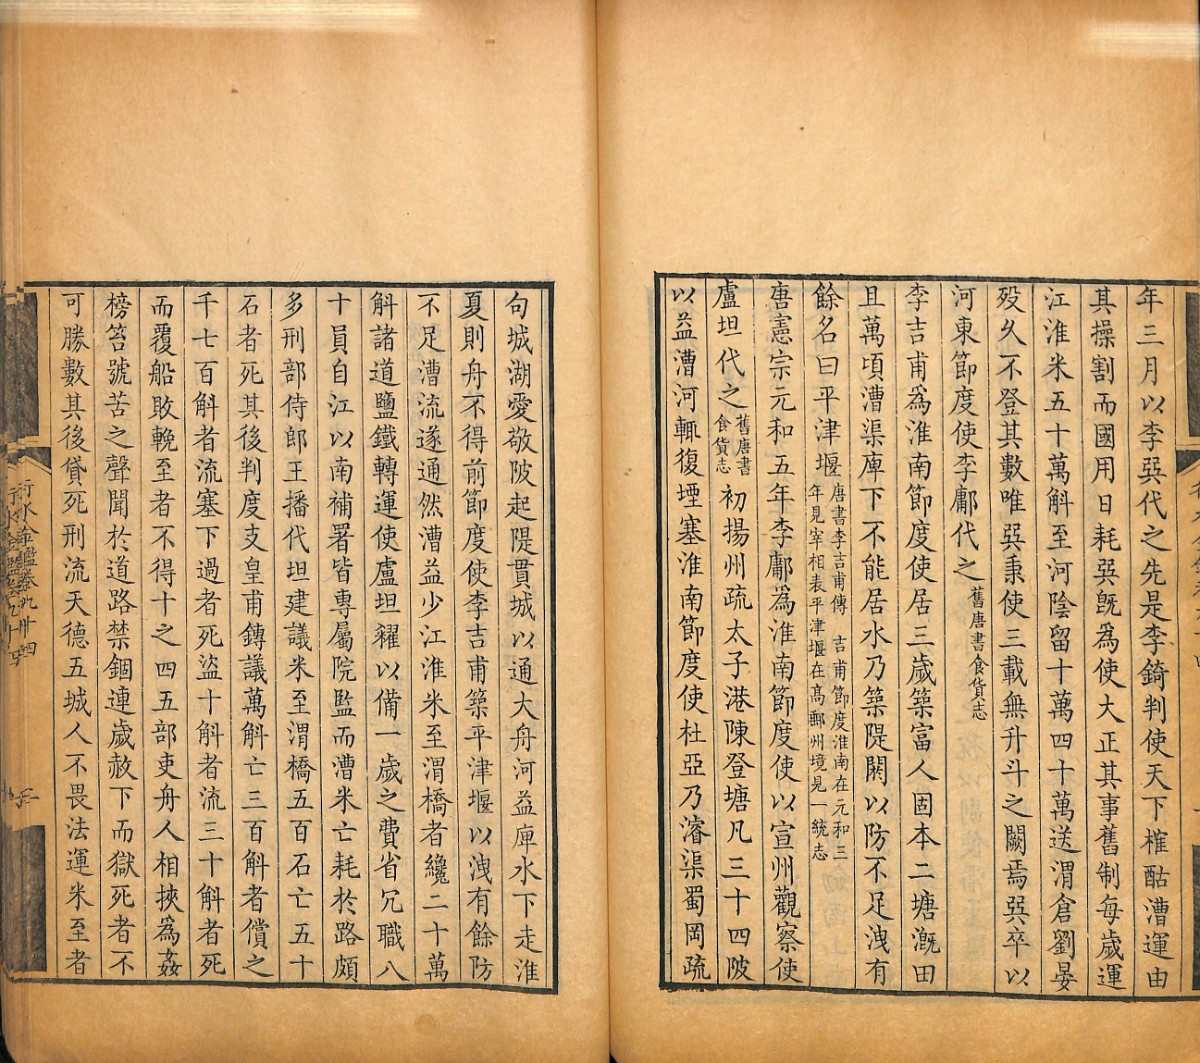 年三月以李巽代之先是李錡判使天下榷酤漕運由
其操割而國用日耗巽旣爲使大正其事舊制每歲運
江淮米五十萬斛至河陰留十萬四十萬送渭倉劉晏
殁久不登其數唯巽秉使三載無升斗之闕焉巽卒以
河東節度使李鄘代之舊唐書食貨志
李吉甫爲淮南節度使居三歲築富人固本二塘漑田
且萬頃漕渠庳下不能居水乃築隄閼以防不足洩有
餘名曰平津堰唐書李吉甫傳 吉甫節度淮南在元和三
年見宰相表平津堰在高郵州境見一統志
唐憲宗元和五年李鄘爲淮南節度使以宣州觀察使
盧坦代之舊唐書
食貨志初揚州疏太子港陳登塘凡三十四陂
以益漕河輒復堙塞淮南節度使杜亞乃濬渠蜀岡疏
句城湖愛敬陂起隄貫城以通大舟河益庳水下走淮
夏則舟不得前節度使李吉甫築平津堰以洩有餘防
不足漕流遂通然漕益少江淮米至渭橋者纔二十萬
斛諸道鹽鐵轉運使盧坦糴以備一歲之費省冗職八
十員自江以南補署皆專屬院監而漕米亡耗於路頗
多刑部侍郎王播代坦建議米至渭橋五百石亡五十
石者死其後判度支皇甫鎛議萬斛亡三百斛者償之
千七百斛者流塞下過者死盜十斛者流三十斛者死
而覆船敗輓至者不得十之四五部吏舟人相挾爲姦
榜笞號苦之聲聞於道路禁錮連歲赦下而獄死者不
可勝數其後貸死刑流天德五城人不畏法運米至者
行水金鑑卷九十四